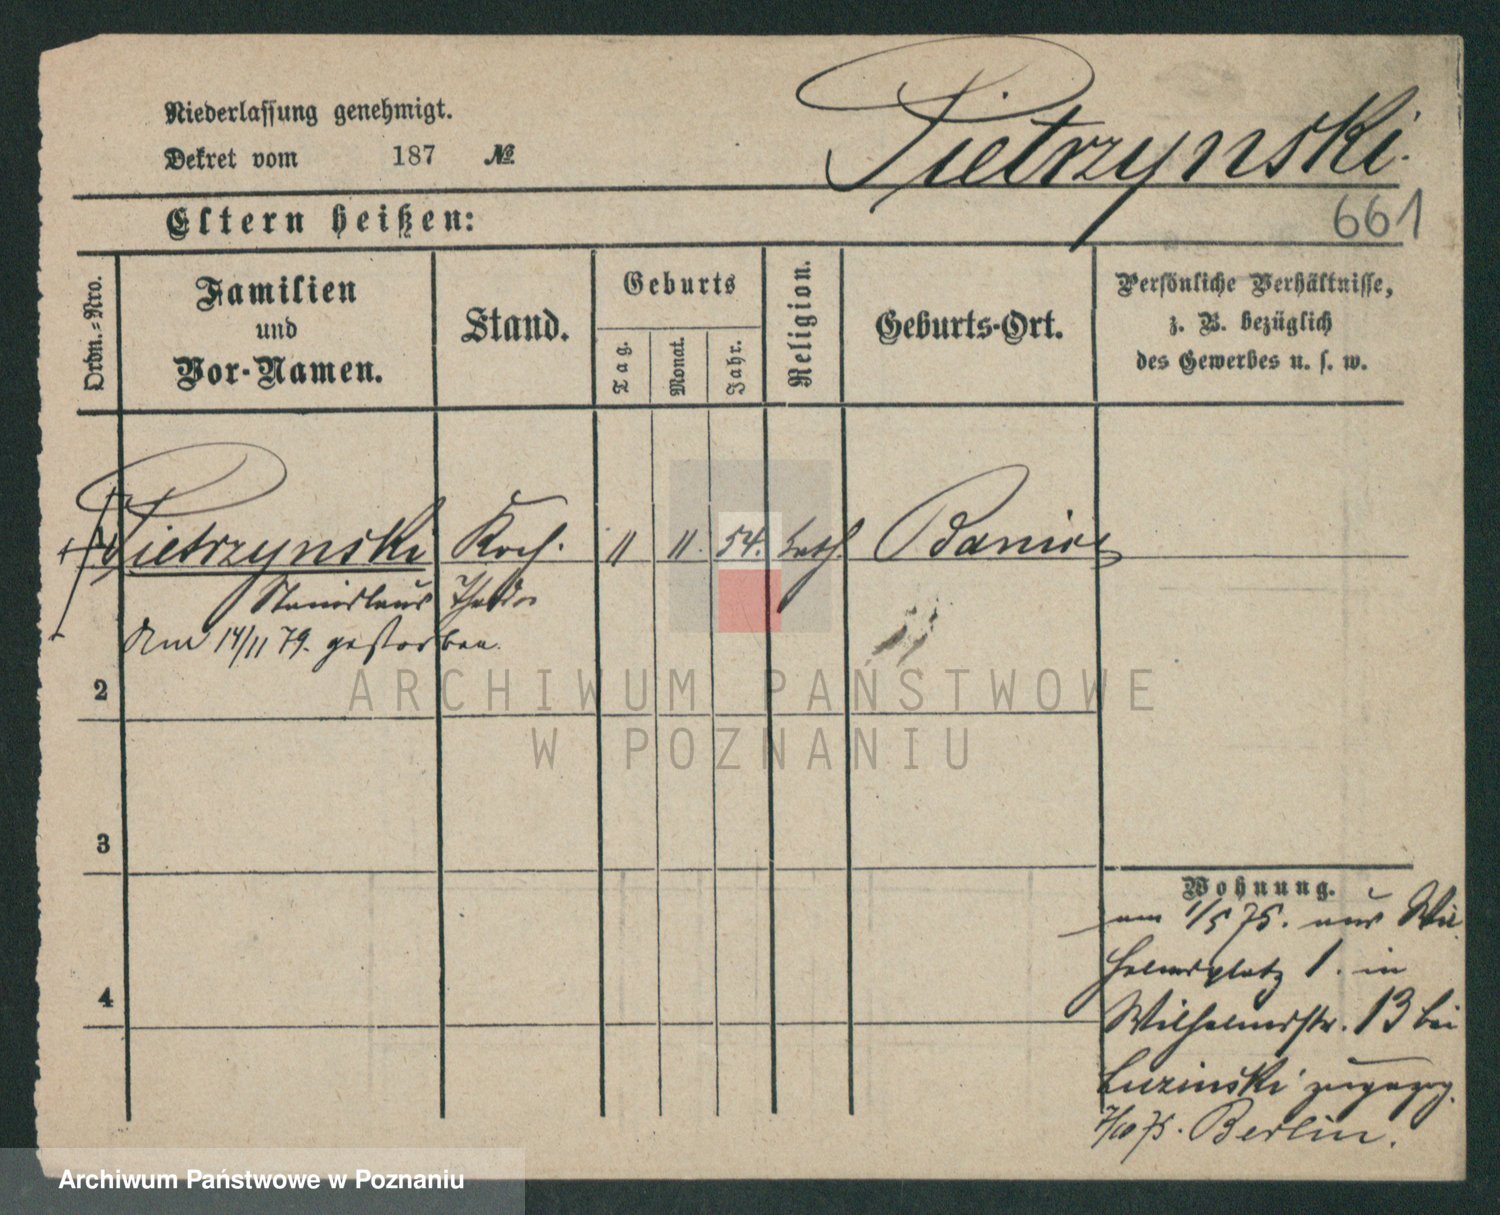 Niederlassung genehmigt.
Dekret vom 187 №
Pietrzynski.
661
Eltern heißen:
Ordn.-Nro.
Familien
und
Vor-Namen.
Stand.
Geburts
Tag.
Monat.
Jahr.
Religion.
Geburts-Ort.
Persönliche Verhältnisse,
z. B. bezüglich
des Gewerbes u. s. w.
Pietrzynski Koch. 11 11. 54. kath.
Stanislaus
Am 14/11 79. gestorben.
2
3
4
Wohnung.
am 1/5 75. aus Wil
helmsplatz 1. in
Wilhelmstr. 13 bei
zugezog.
7/10 75. Berlin.
ARCHIWUM PAŃSTWOWE
W POZNANIU
Archiwum Państwowe w Poznaniu